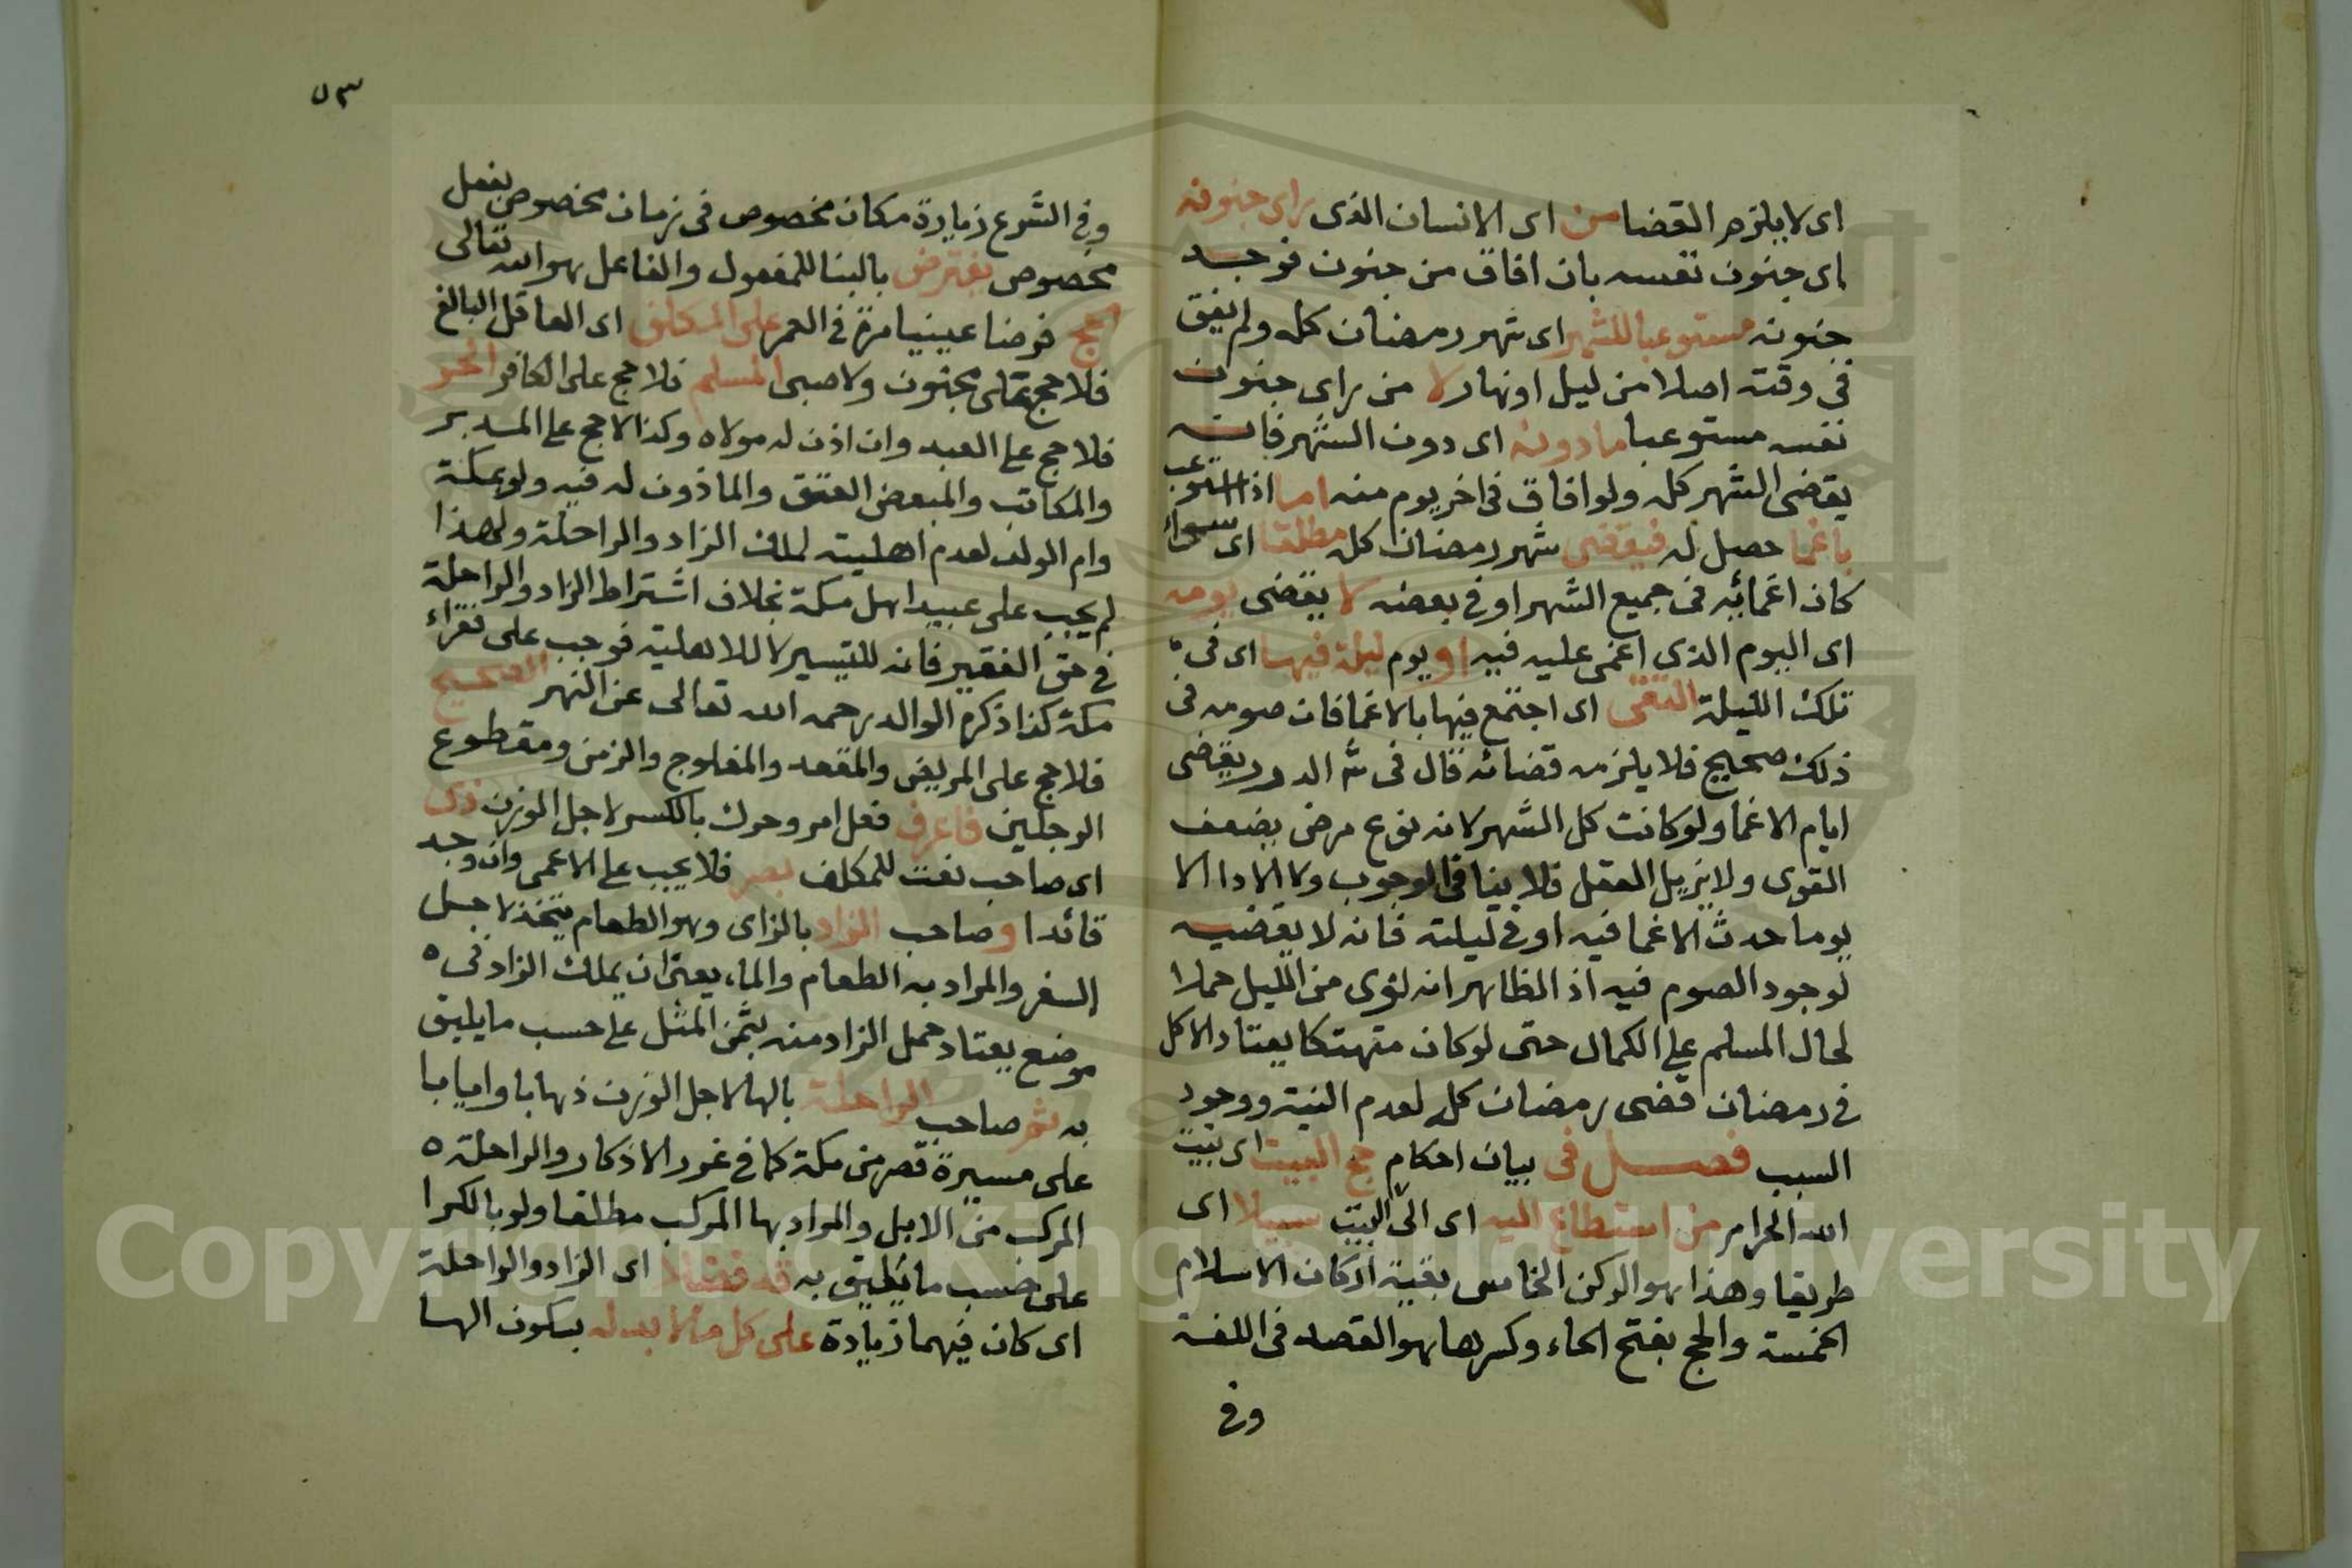 اى لا يلزم القضا من اى الانسان الذى راى جنونه
اى جنون نفسه بان افاق من جنون فوجد
جنونه مستوعبا للشهر اى شهر رمضان كله ولم يفق
فى وقته اصلا من ليل او نهار لا من راى جنون
نفسه مستوعبا ما دونه اى دون الشهر فانه
يقضى الشهر كله ولو افاق فى اخر يوم منه اما اذا استوعب
باغما حصل له فيقضى شهر رمضان كله مطلقا اى سواء
كان اغمائه فى جميع الشهر او فى بعضه لا يقضى يومه
اى اليوم الذى اغمى عليه فيه او يوم ليلة فيها اى فى
تلك الليلة التقى اى اجتمع فيها بالاغما فان صومه فى
ذلك صحيح فلا يلزمه قضائه قال فى شر الدرر يقضى
ايام الاغما ولو كانت كل الشهر لانه نوع مرض يضعف
القوى ولا يزيل العقل فلا ينافى الوجوب ولا الادا الا
يوما حدث الاغما فيه او فى ليلته فانه لا يقضيه
لوجود الصوم فيه اذ الظاهر انه نوى من الليل حملا
لحال المسلم على الكمال حتى لو كان متهتكا يعتاد الاكل
فى رمضان قضى رمضان كله لعدم النية ووجود
السبب فصل فى بيان احكام حج البيت اى بيت
الله الحرام من استطاع اليه اى الى البيت سبيلا اى
طريقا وهذا هو الركن الخامس بقية اركان الاسلام
الخمسة والحج بفتح الحاء وكسرها هو القصد فى اللغة
وفى
٥٣
وفى الشرع زيارة مكان مخصوص فى زمان مخصوص بفعل
مخصوص يفترض بالبنا للمفعول والفاعل هو الله تعالى
الحج فرضا عينيا مرة فى العمر على المكلف اى العاقل البالغ
فلا حج على مجنون ولا صبى المسلم فلا حج على الكافر الحر
فلا حج على العبد وان اذن له مولاه وكذا لا حج على المدبر
والمكاتب والمبعض العتق والماذون له فيه ولو بمكة
وام الولد لعدم اهليته لملك الزاد والراحلة ولهذا
لم يجب على عبيد اهل مكة بخلاف اشتراط الزاد والراحلة
فى حق الفقير فانه للتيسير لا للاهلية فوجب على فقراء
مكة كذا ذكره الوالد رحمه الله تعالى عن النهر الصحيح
فلا حج على المريض والمقعد والمفلوج والزمن ومقطوع
الرجلين فاعرف فعل امر وحرك بالكسر لاجل الوزن ذى
اى صاحب نعت للمكلف بصر فلا يجب على الاعمى وان وجد
قائدا و صاحب الزاد بالزاى وهو الطعام يتخذ لاجل
السفر والمراد به الطعام والماء يعنى ان يملك الزاد فى
موضع يعتاد حمل الزاد منه بثمن المثل على حسب ما يليق
به ثم صاحب الراحلة بالها لاجل الوزن ذهابا وايابا
على مسيرة قصر من مكة كما فى غرر الاذكار والراحلة
المركب من الابل والمراد بها المركب مطلقا ولو بالكرا
على حسب ما يليق به قد فضلا اى الزاد والراحلة
اى كان فيهما زيادة على كل ما لا بد له بسكون الها
Copyright © King Saud University